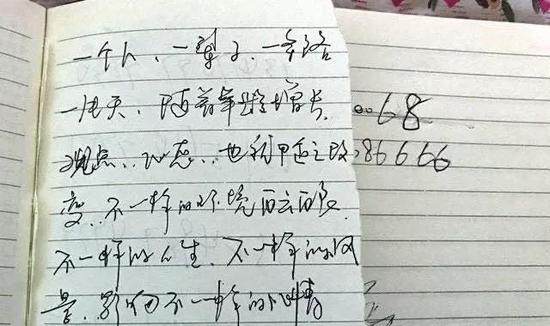 一个人、一辈子、一条路
一片天、随着年龄增长、
观点、心态、也和甲子之改
变、不一样的环境
不一样的人生、不一样的风
景、影响不一样的心情
68
86666